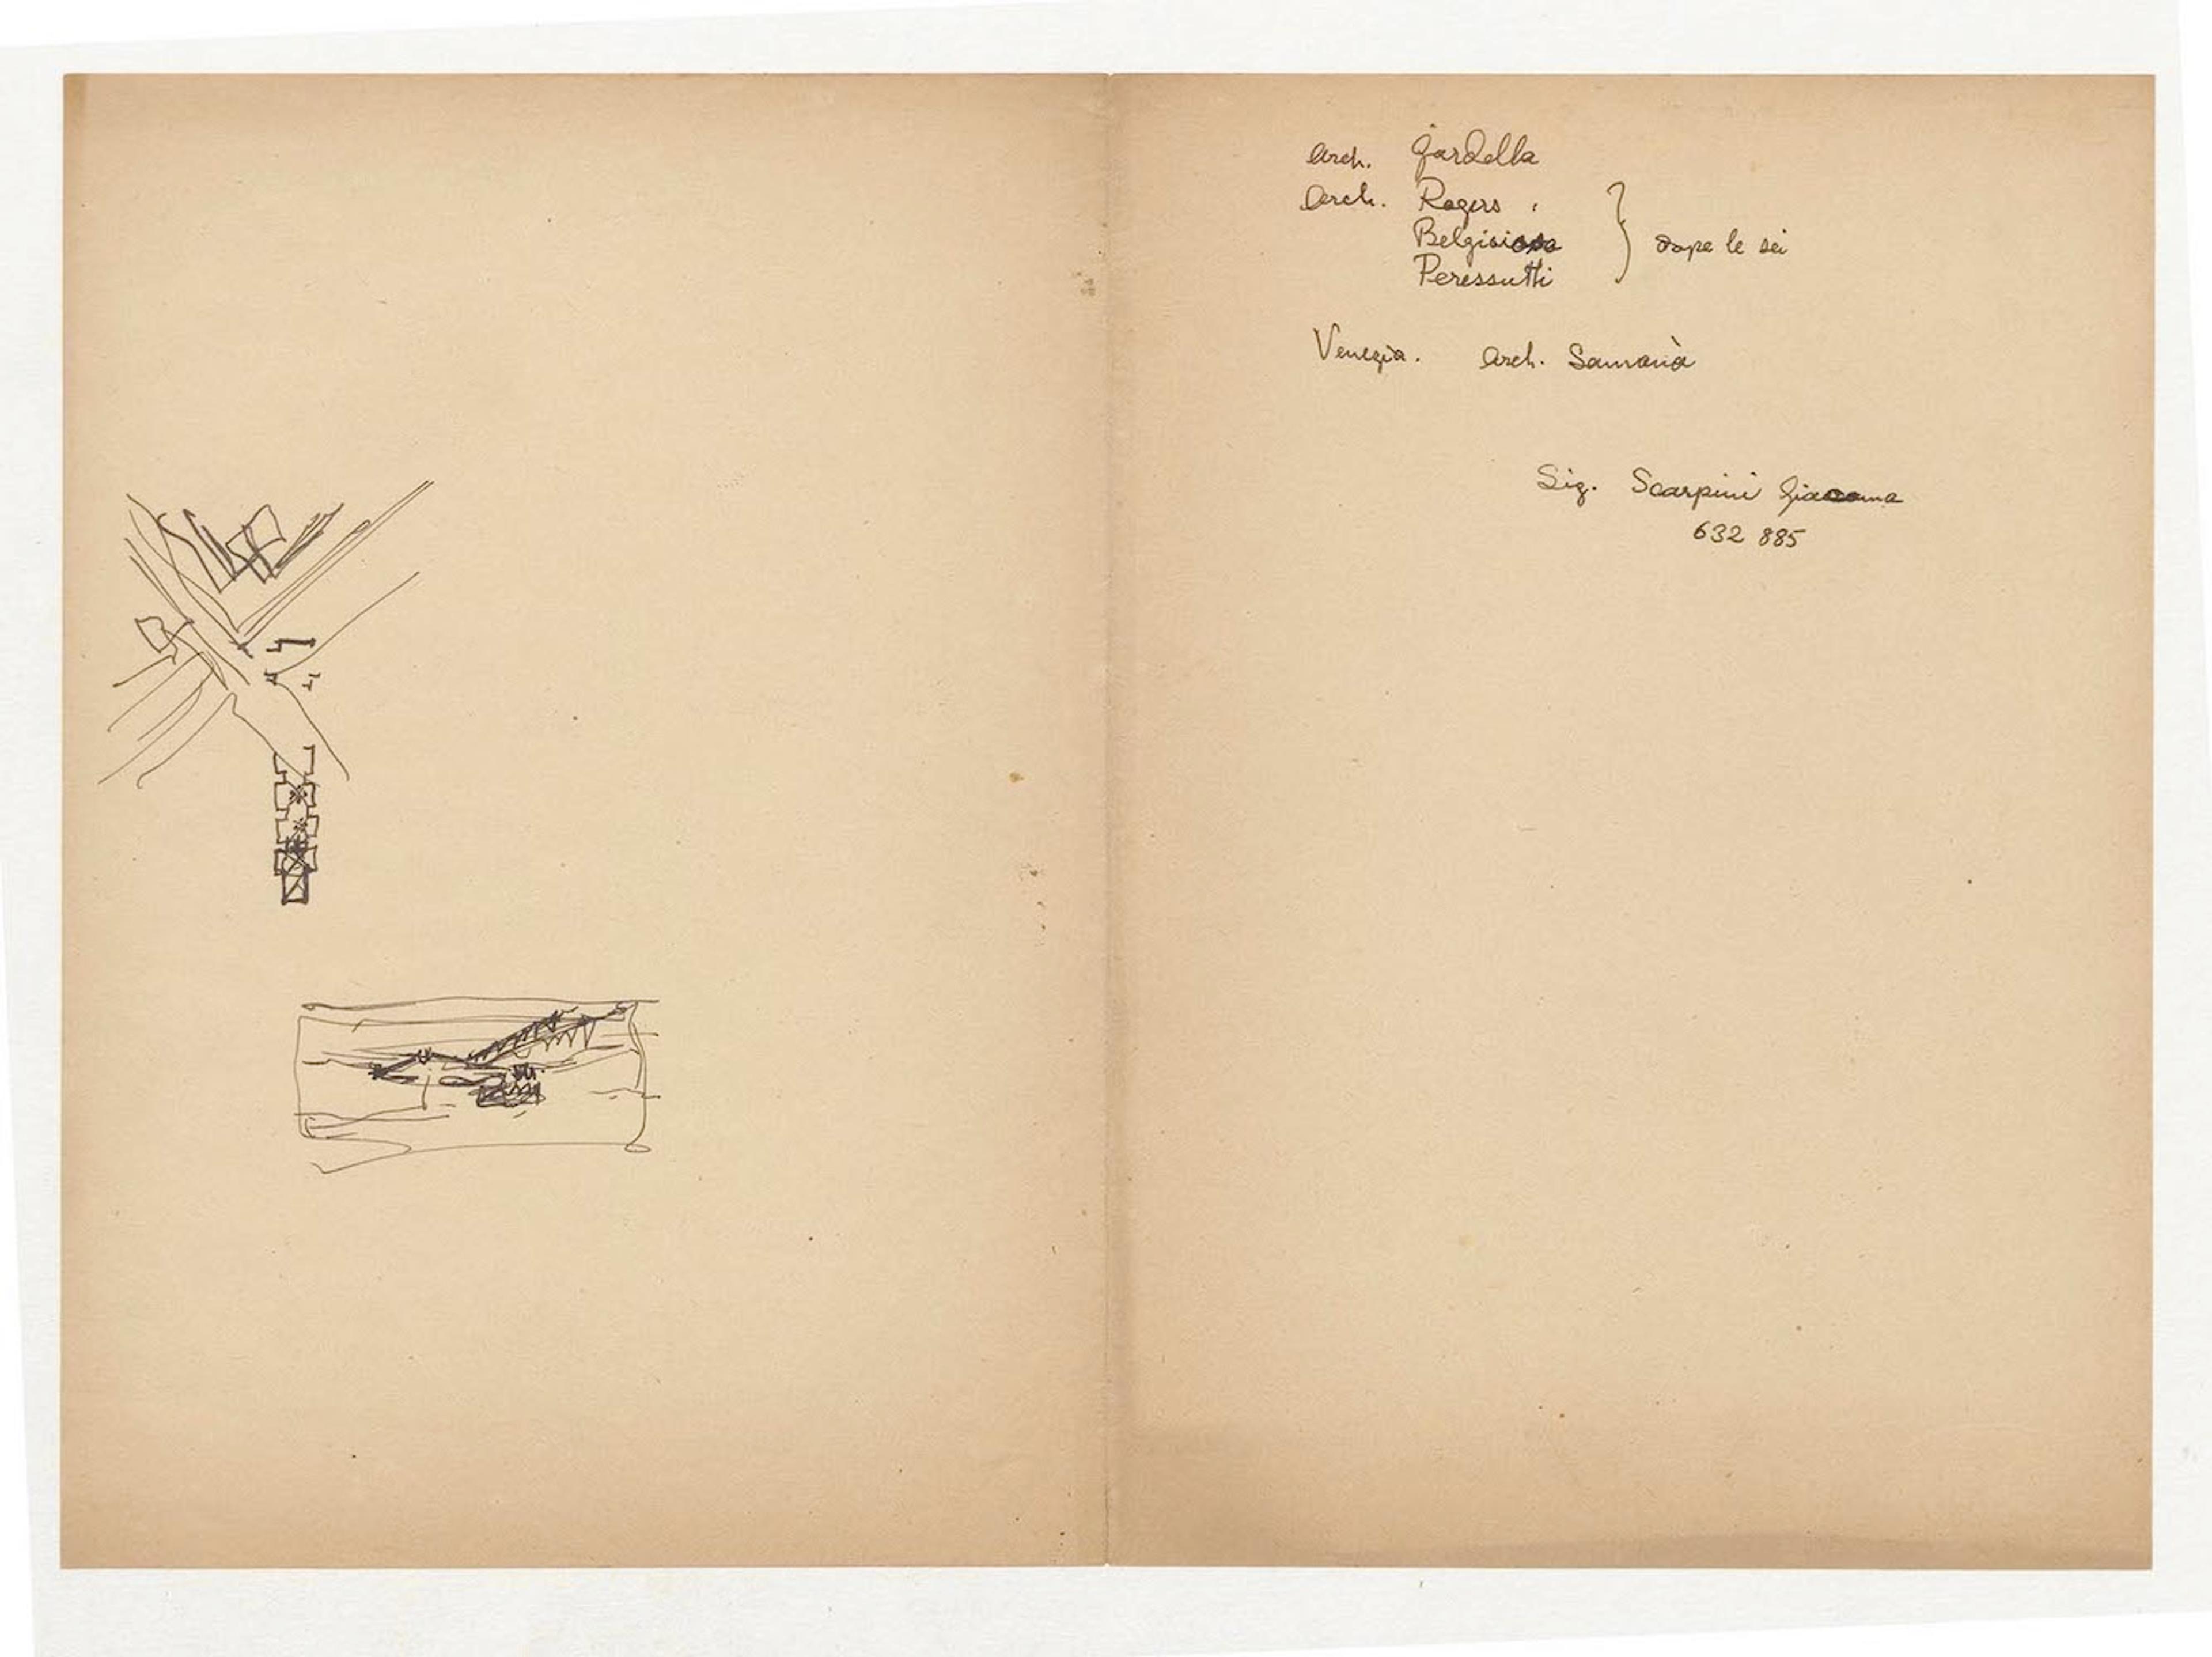 Arch. Gardella
Arch. Rogers,
Belgioioso
Peressutti
} dopo le sei
Venezia. Arch. Samonà
Sig. Scarpini Giacomo
632 885